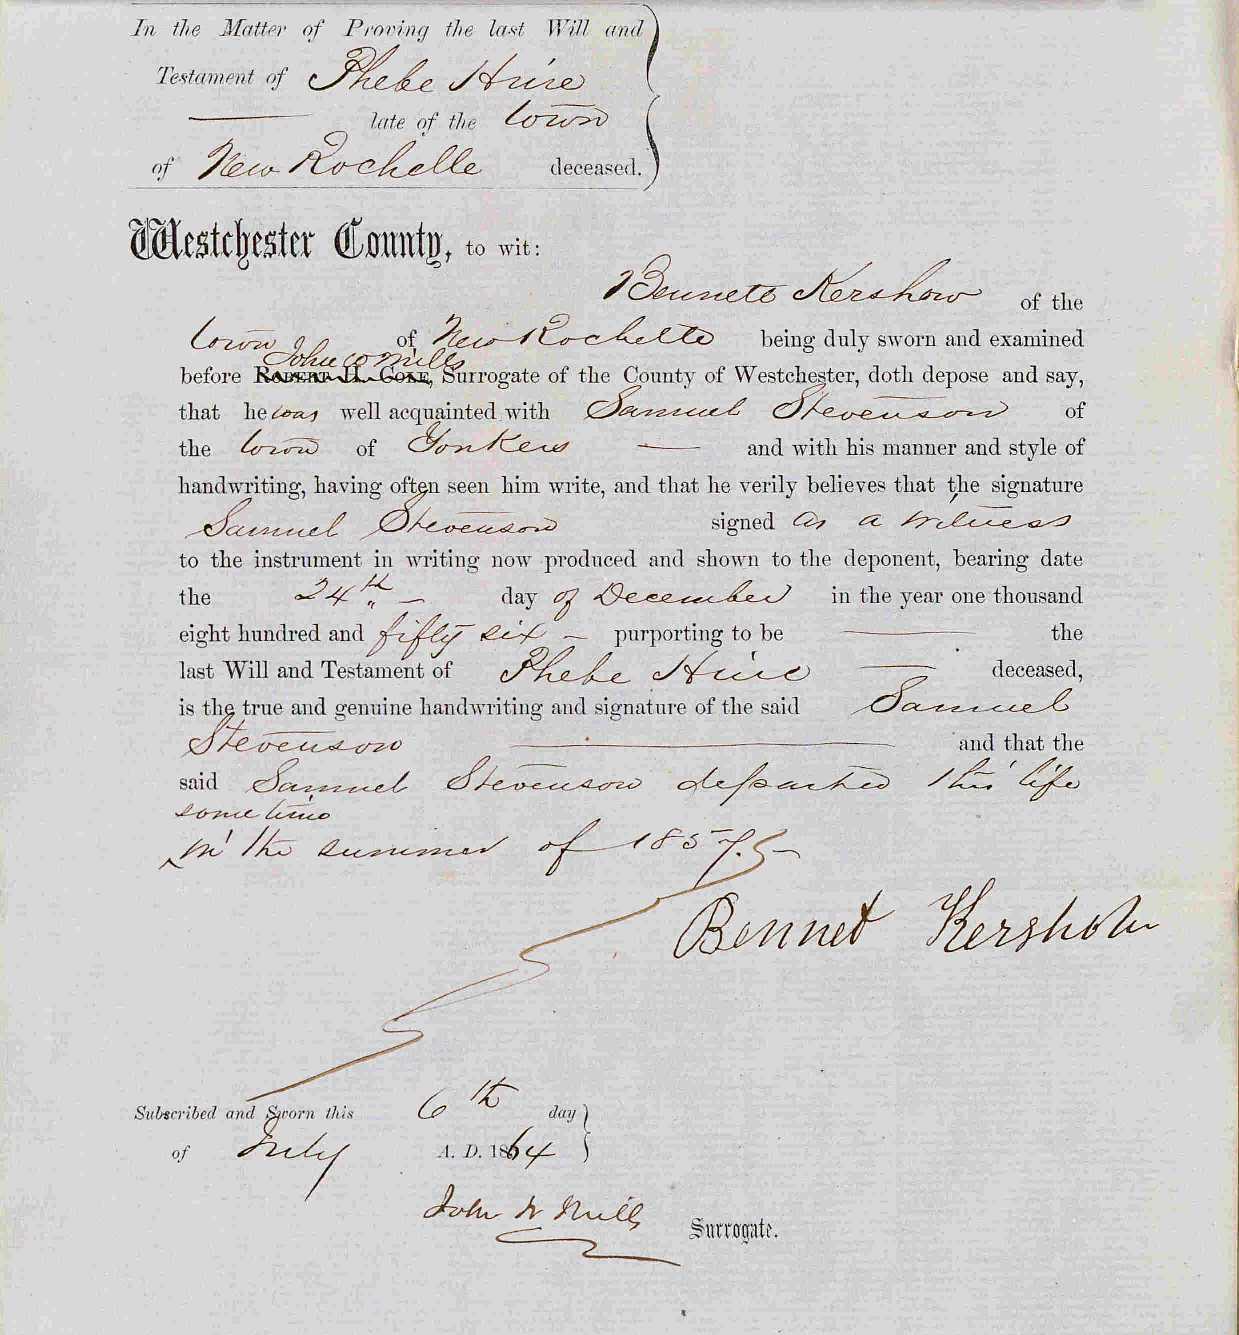 In the Matter of Proving the last Will and
Testament of Phebe Hine
late of the town
of New Rochelle deceased.
Westchester County, to wit:
Bennett Kershow of the
town of New Rochelle being duly sworn and examined
John W Mills
before Robert H. Coke, Surrogate of the County of Westchester, doth depose and say,
that he was well acquainted with Samuel Stevenson of
the town of Yonkers and with his manner and style of
handwriting, having often seen him write, and that he verily believes that the signature
Samuel Stevenson signed as a witness
to the instrument in writing now produced and shown to the deponent, bearing date
the 24th day of December in the year one thousand
eight hundred and fifty six purporting to be the
last Will and Testament of Phebe Hine deceased,
is the true and genuine handwriting and signature of the said Samuel
Stevenson and that the
said Samuel Stevenson departed this life
some time
in the summer of 1857.
Bennet Kershow
Subscribed and Sworn this 6th day
of July A. D. 1864
John W Mills Surrogate.